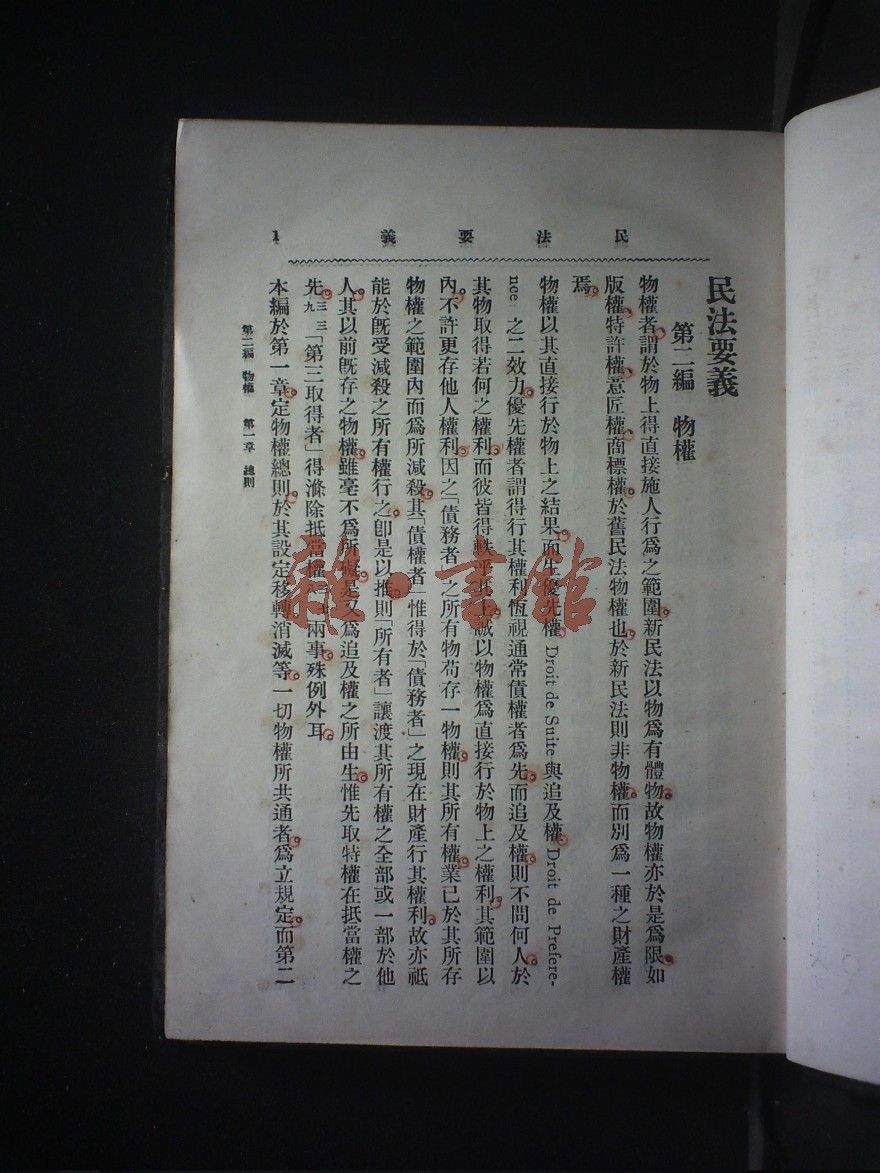 民法要義
1
民法要義
第二編 物權
物權者、謂於物上得直接施人行爲之範圍。新民法以物爲有體物。故物權亦於是爲限。如
版權、特許權、意匠權、商標權。於舊民法物權也。於新民法則非物權。而別爲一種之財產權
焉。
物權以其直接行於物上之結果。而生優先權。Droit de Suite 與追及權。Droit de Prefere-
nce 之二效力。優先權者謂得行其權利恆視通常債權者爲先。而追及權。則不問何人。於
其物取得若何之權利。而彼皆得軼乎其上。誠以物權爲直接行於物上之權利。其範圍以
內。不許更存他人權利。因之「債務者」之所有物苟存一物權。則其所有權。業已於其所存
物權之範圍內而爲所減殺。其「債權者」惟得於「債務者」之現在財產行其權利。故亦祗
能於旣受減殺之所有權行之。卽是以推。則「所有者」讓渡其所有權之全部或一部於他
人。其以前旣存之物權。雖毫不爲所礙。是又爲追及權之所由生。惟先取特權在抵當權之
先。三三九「第三取得者」得滌除抵當權 兩事。殊例外耳。
本編於第一章定物權總則。於其設定移轉消滅等。一切物權所共通者。爲立規定。而第二
第二編 物權 第一章 總則
雜·書館